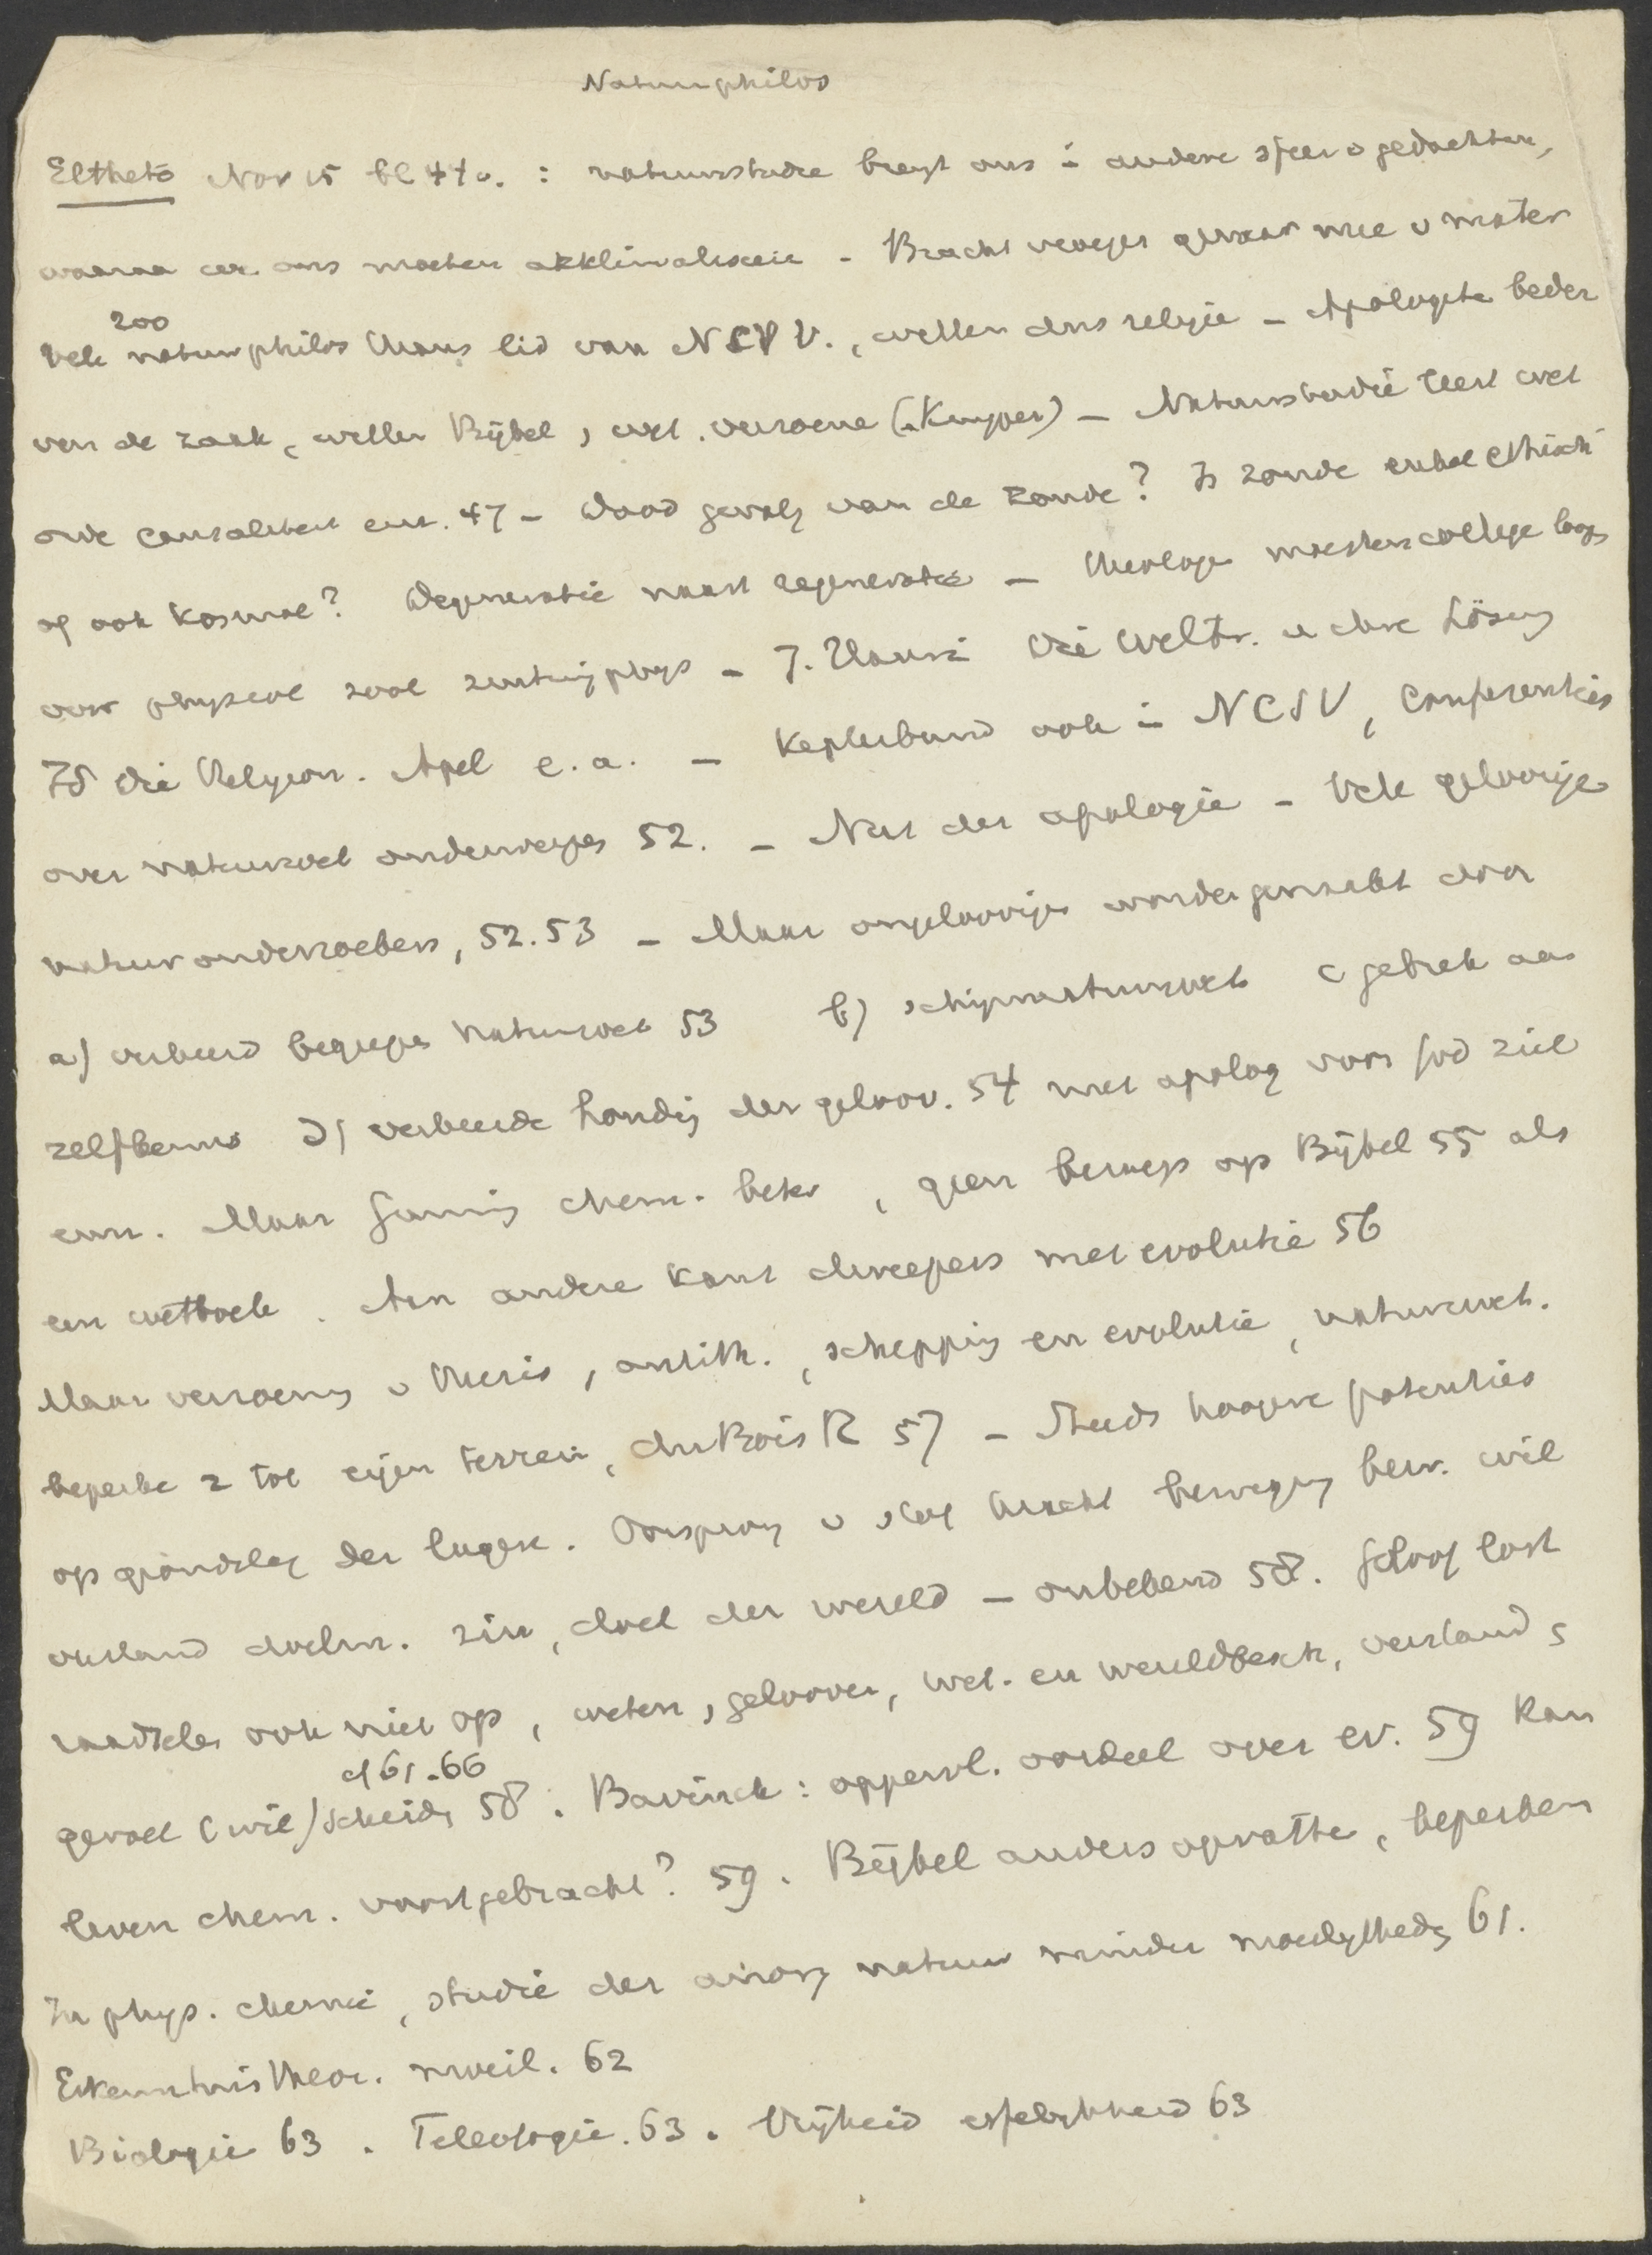 Natuurphilos
Eltheto Nov 15 bl 47 v. : natuurstudie brengt ons i andere sfeer v gedachten,
waaraan we ons moeten akklimatiseeren - Bracht vroeger gevaar mee v mater
200
Vele natuurphilos thans lid van NCSV., willen dus religie - Apologete beder
ven de zaak, willen Bijbel, wet. verzoene (Kuyper) - Natuurstudie leert wet
orde causaliteit enz. 47 - Dood gevolg van de zonde? Is zonde enkel ethisch
of ook kosmol? Degeneratie naast regeneratie - Theologe moesten college loop
over physiol zool zintuigphys - J. Die Weltr. u ihre Lösung
Id die Religion. Apel e.a. - Keplerbund ook i NCSV, Conferenties
over natuurwet onderwerpen 52. - Nut der apologie - Vele geloovige
natuuronderzoekers, 52.53 - Maar ongeloovige worden gemaakt door
a) verkeerd begrepen natuurwet 53 b) schijnnatuurwet c gebrek aan
zelfkennis d) verkeerde houding der geloov. 54 met apolog voor God ziel
enz. Maar chem. beter, geen beroep op Bijbel 55 als
een wetboek. Aan andere kant dweepers met evolutie 56
Maar verzoening v thesis, antith., schepping en evolutie, natuurwet.
beperke z tot eigen terrein, duBois R 57 - Steeds hoogere potenties
op grondslag der lagere. Oorsprong v stof kracht beweging bew. wil
verstand doelm. zin, doel der wereld - onbekend 58. Geloof lost
raadsels ook niet op, weten, gelooven, wet. en wereldbesch, verstand,
cf 61.66
gevoel (wil) scheide 58. Bavinck: oppervl. oordeel over ev. 59 Kan
leven chem. voortgebracht? 59. Bijbel anders opvatte, beperken
In phys. chemie, studie der anorg natuur minder moeilijkhede 61.
Erkenntnistheor. moeil. 62
Biologie 63. Teleologie. 63. Vrijheid 63